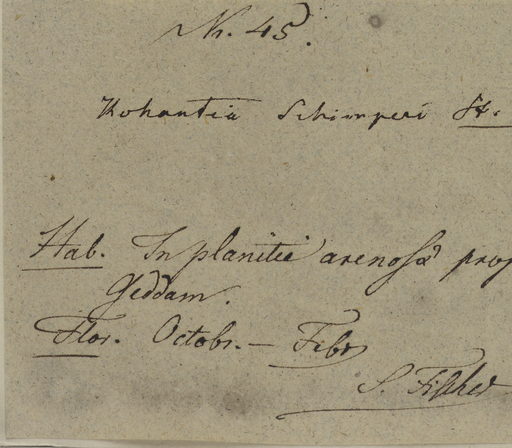 Nr. 45.
Kohautia Schimperi St.
Hab. In planitie arenosâ prop
Geddam.
Flor. Octobr. — Febr
S. Fischer